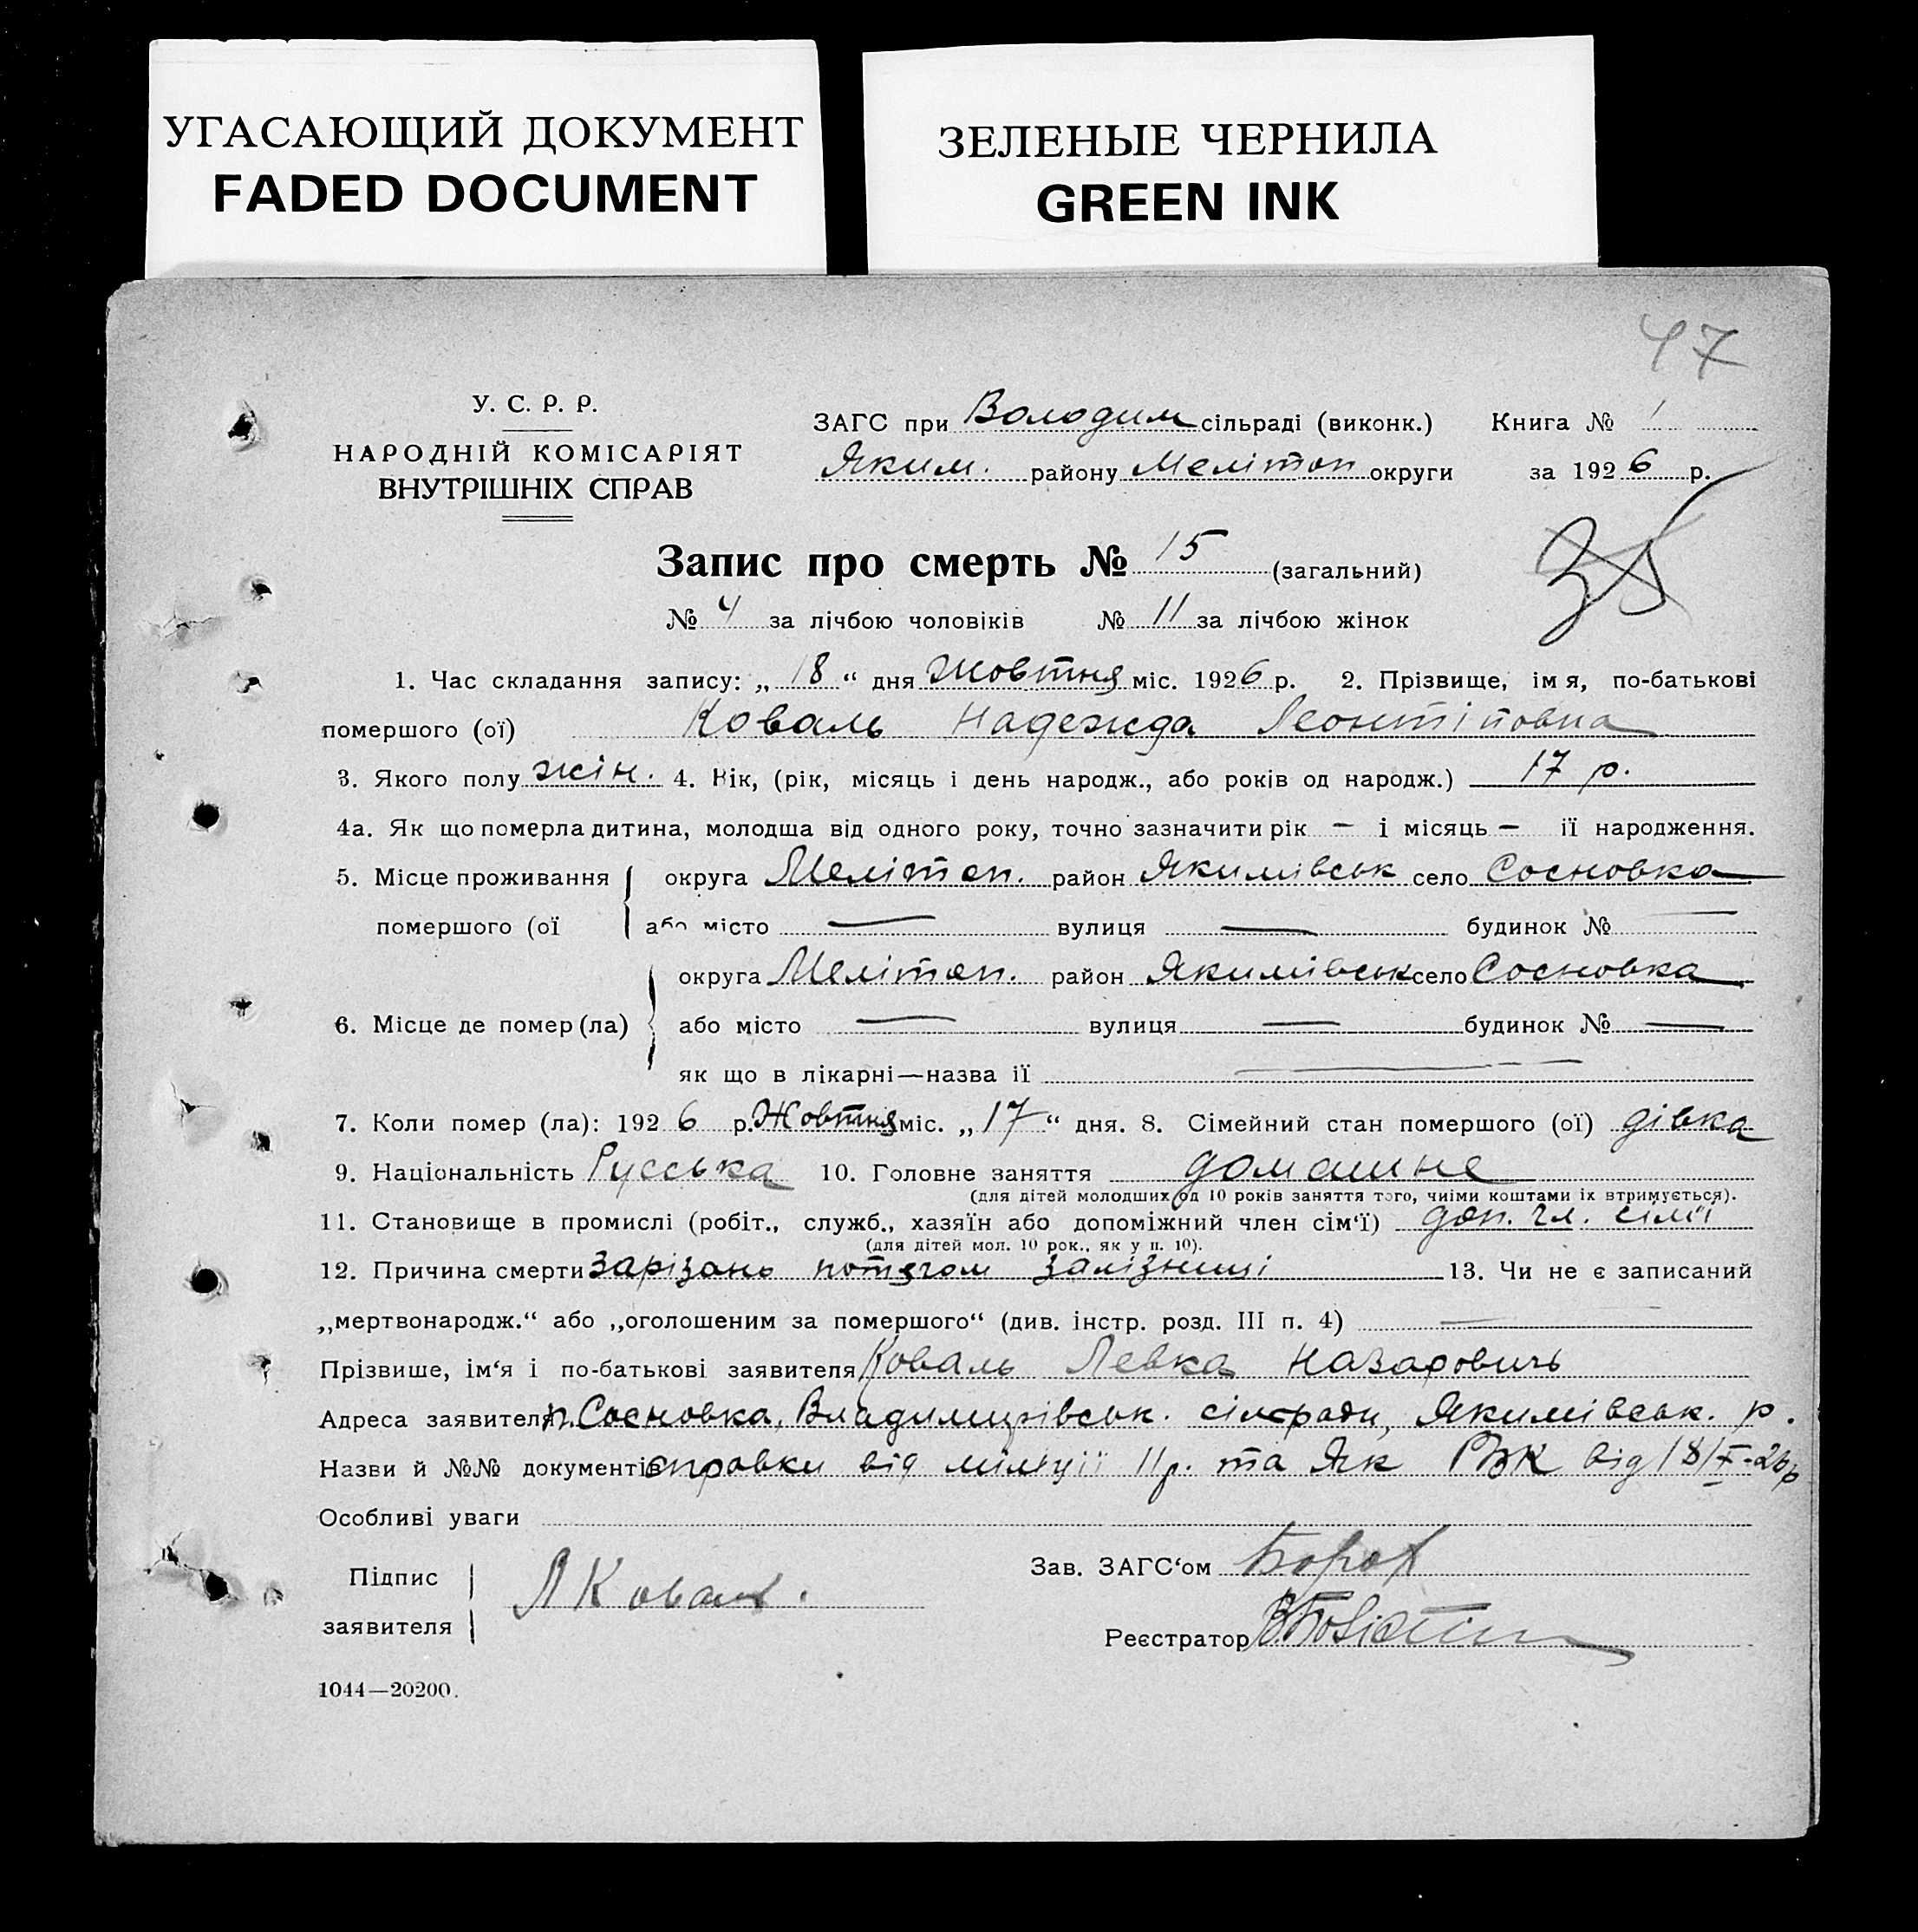 УГАСАЮЩИЙ ДОКУМЕНТ
FADED DOCUMENT
ЗЕЛЕНЫЕ ЧЕРНИЛА
GREEN INK
47
У. С. Р. Р.
НАРОДНІЙ КОМІСАРІЯТ
ВНУТРІШНІХ СПРАВ
ЗАГС при Володим сільраді (виконк.) Книга № 1
Яким. району Мелітоп округи за 1926 р.
Запис про смерть № 15 (загальний)
№ 4 за лічбою чоловіків № 11 за лічбою жінок
1. Час складання запису: „18“ дня Жовтня міс. 1926 р. 2. Прізвище, імя, по-батькові
помершого (ої) Коваль Надежда Леонтіповна
3. Якого полу жін. 4. Вік, (рік, місяць і день народж., або років од народж.) 17 р.
4а. Як що померла дитина, молодша від одного року, точно зазначити рік — і місяць — її народження.
5. Місце проживання округа Мелітоп. район Якимівськ село Сосновка
помершого (ої або місто — вулиця — будинок № —
округа Мелітоп. район Якимівськ село Сосновка
6. Місце де помер (ла) або місто — вулиця — будинок № —
як що в лікарні—назва ії —
7. Коли помер (ла): 1926 р. Жовтня міс. „17“ дня. 8. Сімейний стан помершого (ої) дівка
9. Національність Русська 10. Головне заняття домашне
(для дітей молодших од 10 років заняття того, чиїми коштами їх втримується).
11. Становище в промислі (робіт., служб., хазяїн або допоміжний член сім‘ї) доп. чл. сімї
(для дітей мол. 10 рок., як у п. 10).
12. Причина смерти зарізано потягом залізниці 13. Чи не є записаний
„мертвонародж.“ або „оголошеним за помершого“ (див. інстр. розд. III п. 4) —
Прізвише, ім‘я і по-батькові заявителя Коваль Левка Назаровичь
Адреса заявителя п. Сосновка, Владимирівськ. сілради, Якимівськ. р.
Назви й №№ документів справки від міліції 11р. та Як РВК від 18/X-26р
Особливі уваги
Підпис
заявителя
Л Коваль.
Зав. ЗАГС‘ом
Реєстратор
1044—20200.